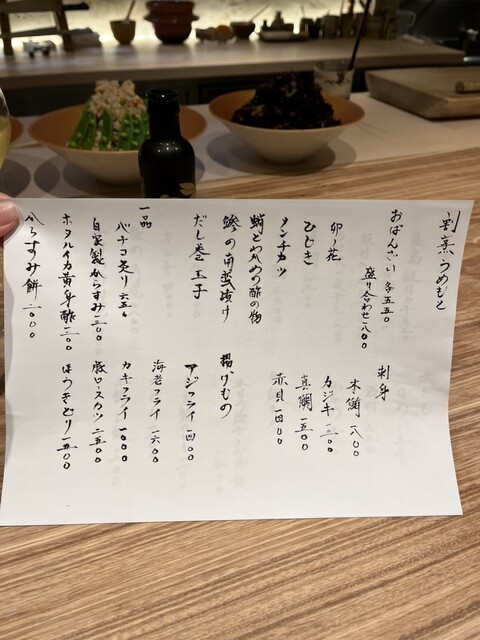 割烹うめもと
おばんざい 各五五〇
盛り合わせ 一八〇〇
卯ノ花
ひじき
メンチカツ
蛸とわかめの酢の物
鯵の南蛮漬け
だし巻玉子
一品
バチコ炙り 六五〇
自家製からすみ 一三〇〇
ホタルイカ黄身酢 一三〇〇
からすみ餅 一〇〇〇
刺身
本鮪 一八〇〇
カジキ 一二〇〇
真鯛 一五〇〇
赤貝 一四〇〇
揚げもの
アジフライ 一四〇〇
海老フライ 一六〇〇
カキフライ 一〇〇〇
豚ロースカツ 二五〇〇
ほうきどり 一五〇〇